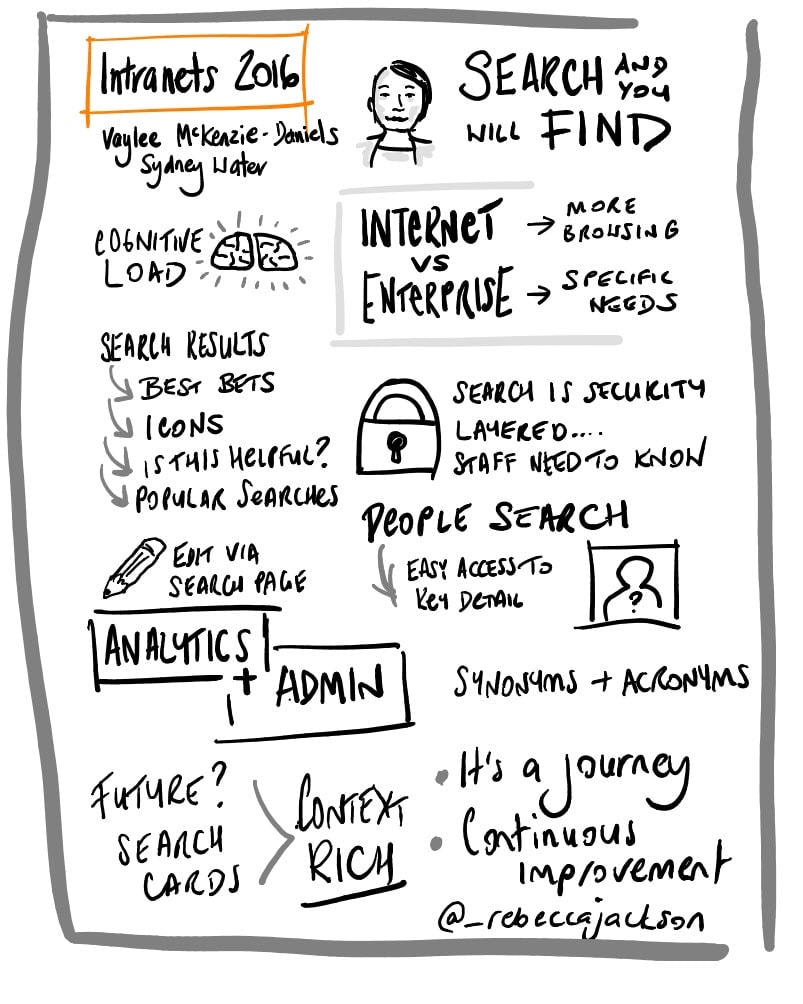 Intranets 2016
Vaylee McKenzie-Daniels
Sydney Water
SEARCH AND YOU
WILL FIND
COGNITIVE
LOAD
INTERNET → MORE BROWSING
VS
ENTERPRISE → SPECIFIC NEEDS
SEARCH RESULTS
BEST BETS
ICONS
IS THIS HELPFUL?
POPULAR SEARCHES
SEARCH IS SECURITY
LAYERED....
STAFF NEED TO KNOW
PEOPLE SEARCH
EASY ACCESS TO
KEY DETAIL
?
EDIT VIA
SEARCH PAGE
ANALYTICS
+ ADMIN
SYNONYMS + ACRONYMS
FUTURE?
SEARCH
CARDS
CONTEXT
RICH
• It's a journey
• Continuous
improvement
@_rebeccajackson